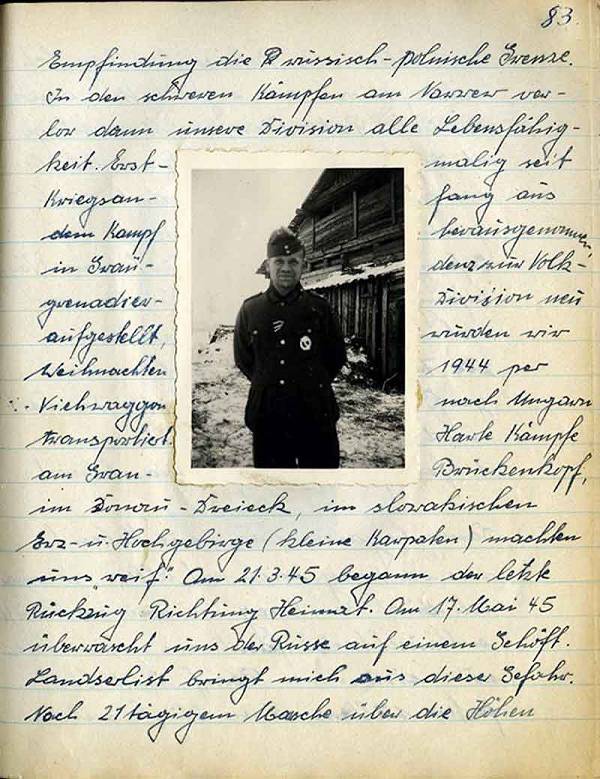 83.
Empfindung die russisch-polnische Grenze.
In den schweren Kämpfen am Narrew ver-
lor dann unsere Division alle Lebensfähig-
keit. Erst- malig seit
Kriegsan- fang aus
dem Kampf herausgenommen,
in Grau- denz zur Volk-
grenadier- Division neu
aufgestellt, wurden wir
Weihnachten 1944 per
Viehwaggon nach Ungarn
transportiert. Harte Kämpfe
am Gran- Brückenkopf,
im Donau-Dreieck, im slowakischen
Erz- u. Hochgebirge (kleine Karpaten) machten
uns "reif". Am 21.3.45 begann der letzte
Rückzug Richtung Heimat. Am 17. Mai 45
überrascht uns der Russe auf einem Gehöft.
Landserlist bringt mich aus dieser Gefahr.
Nach 21tägigem Marsche über die Höhen